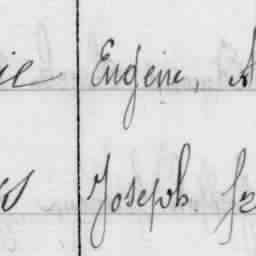 ie Eugène, A
s Joseph. Fr